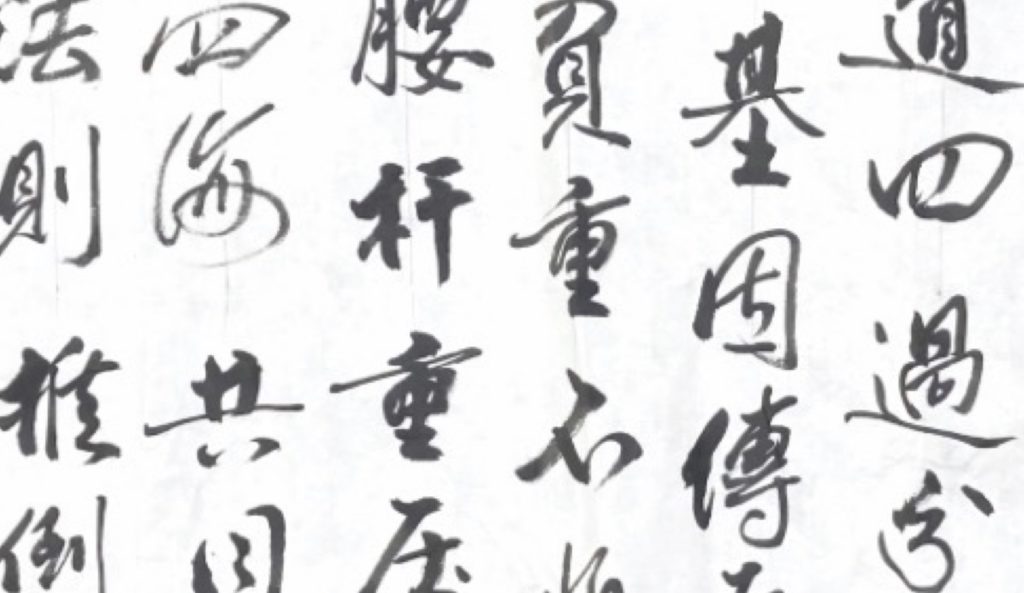 道四過分
基因傳
負重不
腰杆重压
四海共同
法則推倒